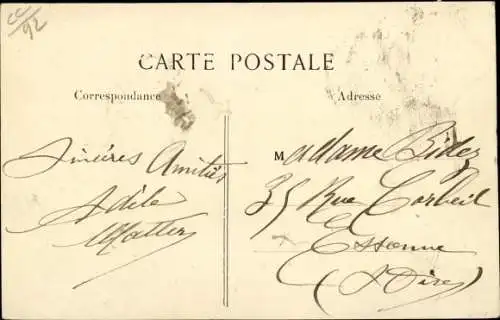 CC
92
CARTE POSTALE
Correspondance
Adresse
Sincères Amitiés
Adèle
Madame
35 Rue Corbeil
Essonne